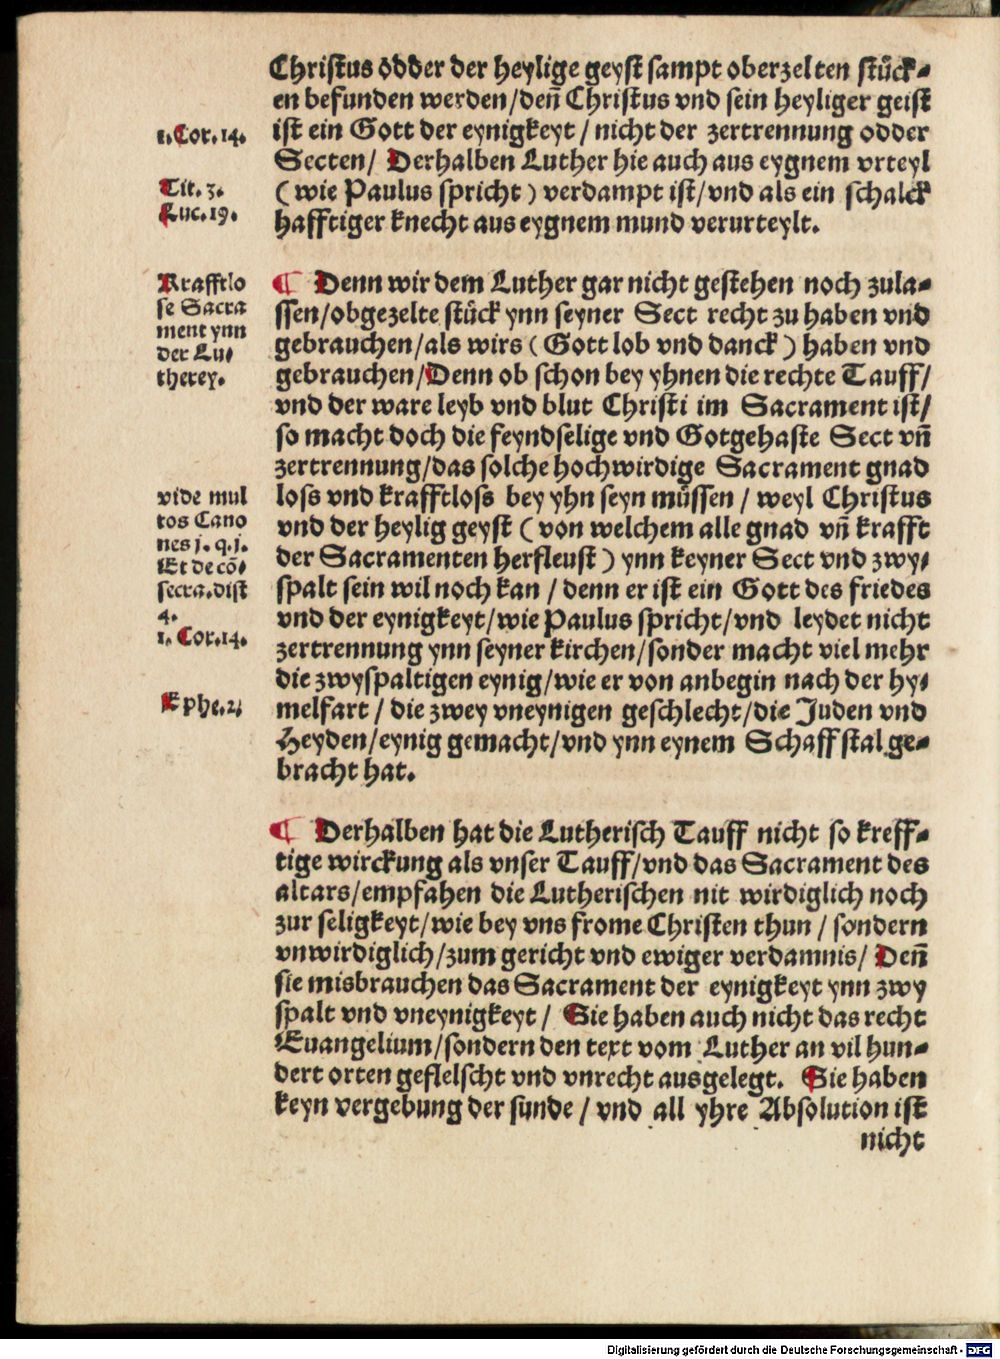 Christus odder der heylige geyst sampt oberzelten stück-
en befunden werden/deñ Christus vnd sein heyliger geist
ist ein Gott der eynigkeyt / nicht der zertrennung odder
Secten/ Derhalben Luther hie auch aus eygnem vrteyl
(wie Paulus spricht) verdampt ist/vnd als ein schalck
hafftiger knecht aus eygnem mund verurteylt.
1.Cor.14.
Tit.3.
Luc.19.
¶ Denn wir dem Luther gar nicht gestehen noch zula-
ssen/obgezelte stück ynn seyner Sect recht zu haben vnd
gebrauchen/als wirs (Gott lob vnd danck) haben vnd
gebrauchen/Denn ob schon bey yhnen die rechte Tauff/
vnd der ware leyb vnd blut Christi im Sacrament ist/
so macht doch die feyndselige vnd Gotgehaste Sect vñ
zertrennung/das solche hochwirdige Sacrament gnad
loss vnd krafftloss bey yhn seyn müssen / weyl Christus
vnd der heylig geyst (von welchem alle gnad vñ krafft
der Sacramenten herfleust) ynn keyner Sect vnd zwy-
spalt sein wil noch kan / denn er ist ein Gott des friedes
vnd der eynigkeyt/wie Paulus spricht/vnd leydet nicht
zertrennung ynn seyner kirchen/sonder macht viel mehr
die zwyspaltigen eynig/wie er von anbegin nach der hy-
melfart / die zwey vneynigen geschlecht/die Juden vnd
Heyden/eynig gemacht/vnd ynn eynem Schaffstal ge-
bracht hat.
Krafftlo
se Sacra
ment ynn
der Lu-
therey.
vide mul
tos Cano
nes j. q.j.
Et de cõ-
secra.dist
4.
1. Cor.14.
Ephe.2.
¶ Derhalben hat die Lutherisch Tauff nicht so kreff-
tige wirckung als vnser Tauff/vnd das Sacrament des
altars/empfahen die Lutherischen nit wirdiglich noch
zur seligkeyt/wie bey vns frome Christen thun / sondern
vnwirdiglich/zum gericht vnd ewiger verdamnis/ Deñ
sie misbrauchen das Sacrament der eynigkeyt ynn zwy
spalt vnd vneynigkeyt / Sie haben auch nicht das recht
Euangelium/sondern den text vom Luther an vil hun-
dert orten geflelscht vnd vnrecht ausgelegt. Sie haben
keyn vergebung der sunde / vnd all yhre Absolution ist
nicht
Digitalisierung gefördert durch die Deutsche Forschungsgemeinschaft - DFG